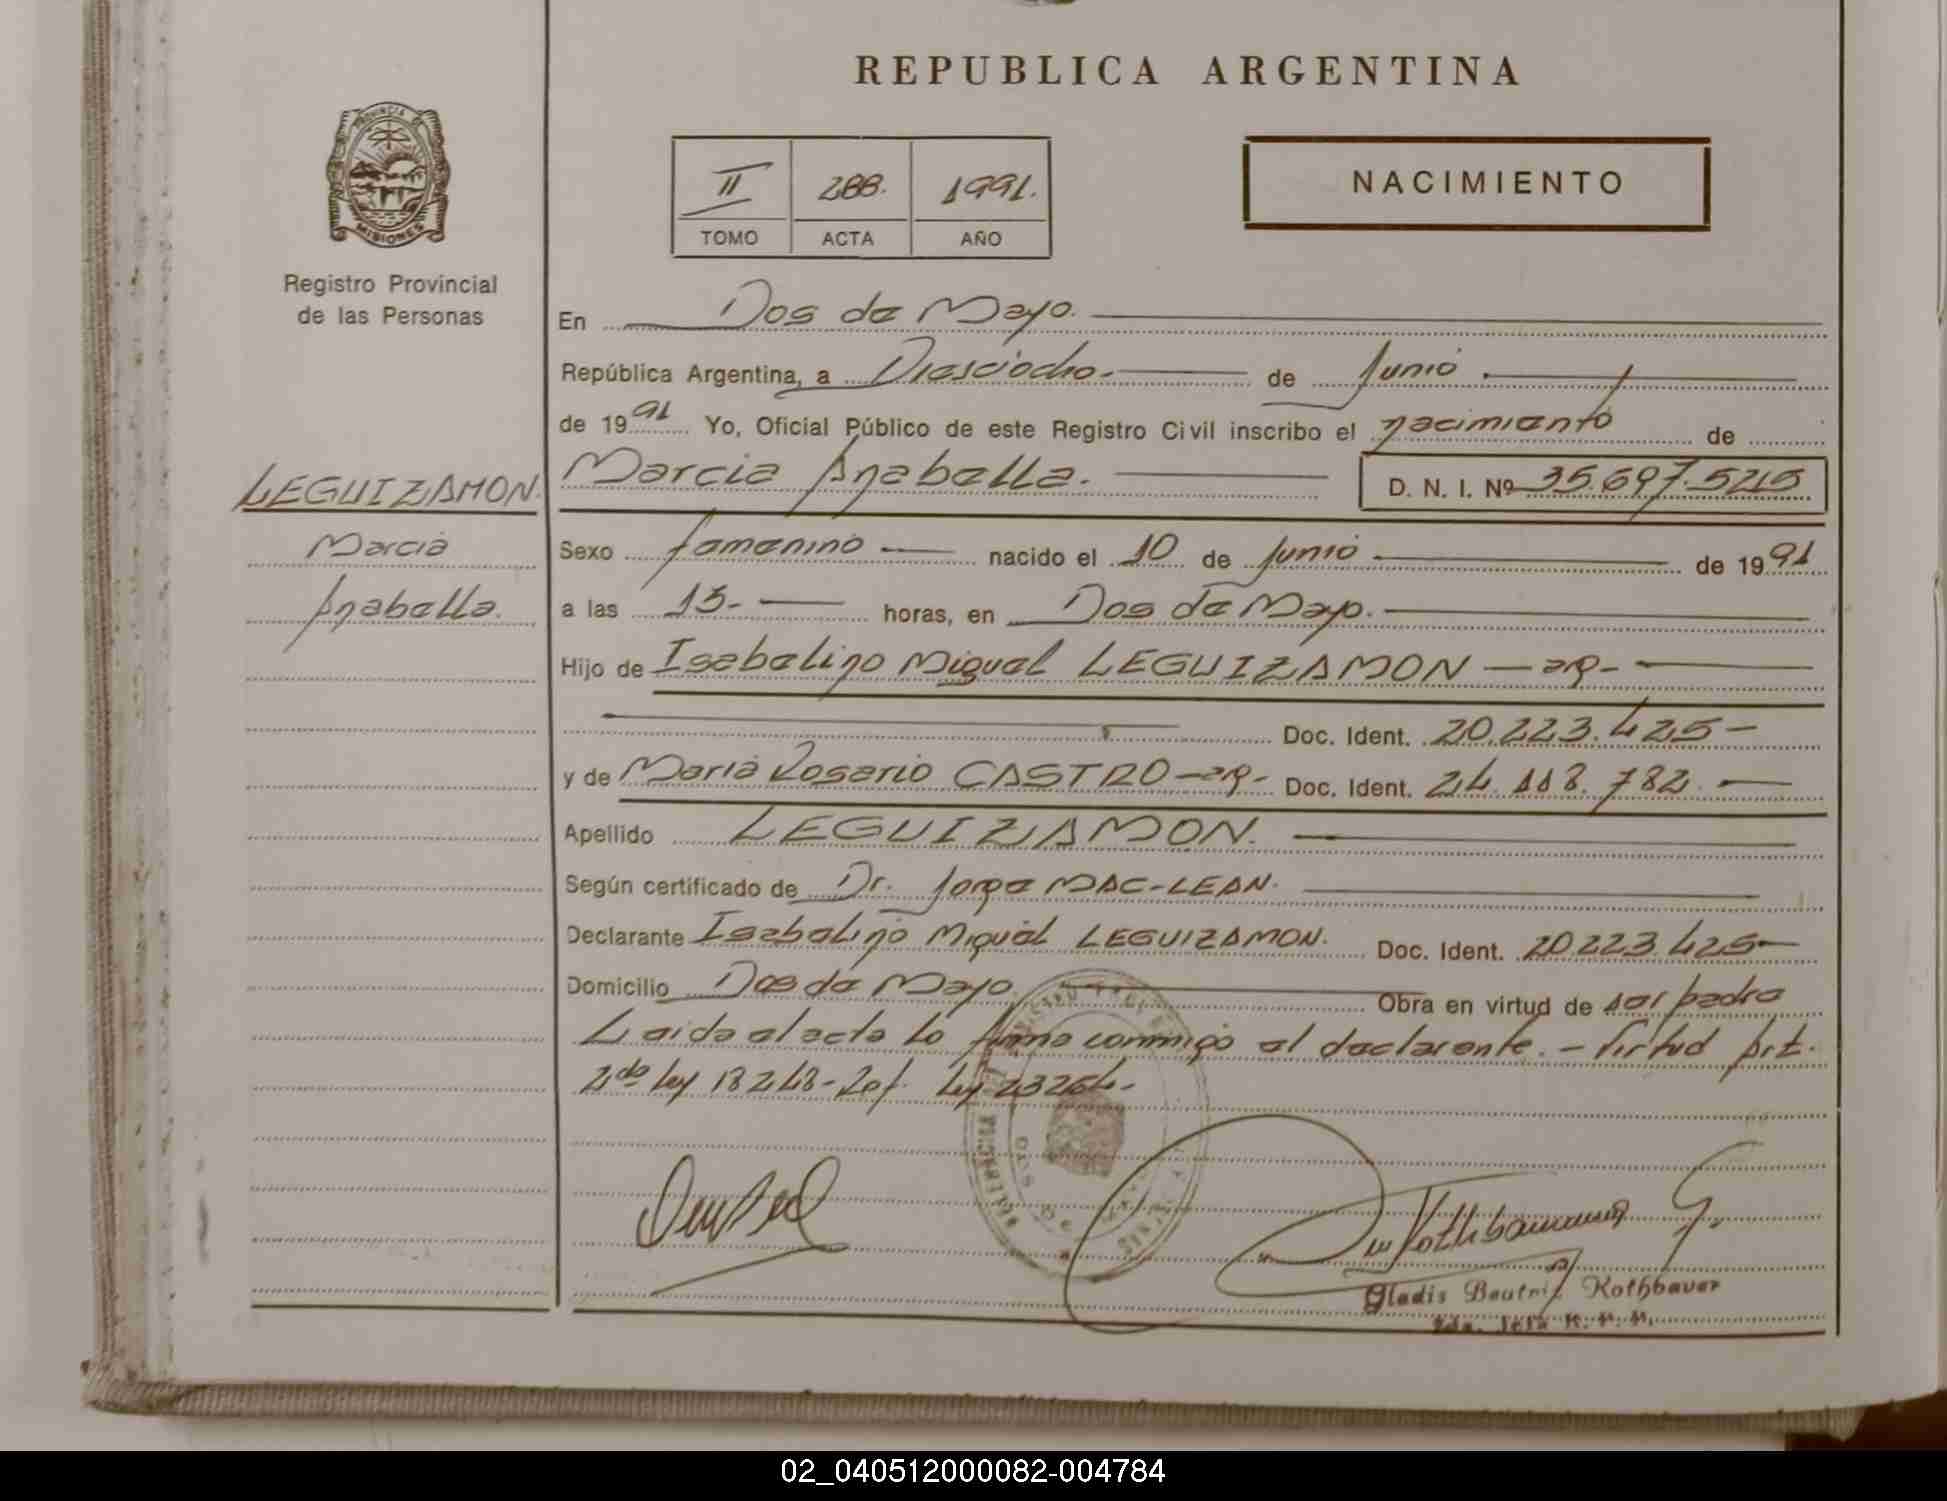 REPUBLICA ARGENTINA
PROVINCIA DE
MISIONES
Registro Provincial
de las Personas
II 288. 1991.
TOMO ACTA AÑO
NACIMIENTO
En Dos de Mayo.
República Argentina, a Diesciocho- de Junio
de 1991 Yo, Oficial Público de este Registro Civil inscribo el nacimiento de
LEGUIZAMON.
Marcia
Anabella.
Marcia Anabella. D. N. I. Nº 35.697.525
Sexo femenino nacido el 10 de Junio de 1991
a las 13- horas, en Dos de Mayo.
Hijo de Isabelino Miguel LEGUIZAMON - ar-
Doc. Ident. 20.223.425-
y de Maria Rosario CASTRO-ar- Doc. Ident. 24.118.782.
Apellido LEGUIZAMON.
Según certificado de Dr. Jorge MAC-LEAN.
Declarante Isabelino Miguel LEGUIZAMON. Doc. Ident. 20.223.425-
Domicilio Dos de Mayo Obra en virtud de ser padre
Leida el acta lo firma conmigo el declarante.- Virtud Art.
2do ley 18248- Ley 23264-
Gladis Beatriz Rothbauer
02_040512000082-004784